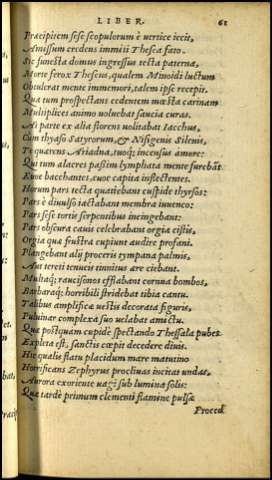 LIBER. 61
Præcipitem sese scopulorum è vertice iecit,
Amissum credens immiti Thesea fato.
Sic funesta domus ingressus tecta paterna,
Morte ferox Theseus, qualem Minoidi luctum
Obtulerat mente immemori, talem ipse recepit.
Quæ tum prospectans cedentem mœsta carinam
Multiplices animo voluebat saucia curas.
At parte ex alia florens uolitabat Iacchus,
Cum thyaso Satyrorum, & Nisigenis Silenis,
Te quærens Ariadna, tuoq; incensus amore:
Qui tum alacres passim lymphata mente furebãt
Euoe bacchantes, euoe capita inflectentes.
Horum pars tecta quatiebant cuspide thyrsos:
Pars è diuulso iactabant membra iuuenco:
Pars sese tortis serpentibus incingebant:
Pars obscura cauis celebrabant orgia cistis,
Orgia quæ frustra cupiunt audire profani.
Plangebant alij proceris tympana palmis,
Aut tereti tenues tinnitus ære ciebant.
Multaq; raucisonos efflabant cornua bombos,
Barbaraq; horribili stridebat tibia cantu.
Talibus amplificæ uestis decorata figuris,
Puluinar complexa suo uelabat amictu.
Quæ postquam cupidè spectando Thessala pubes
Expleta est, sanctis cœpit decedere diuis.
Hic qualis flatu placidum mare matutino
Horrificans Zephyrus procliuas incitat undas,
Aurora exoriente uagi sub lumina solis:
Quæ tardè primum clementi flamine pulsæ
Proced